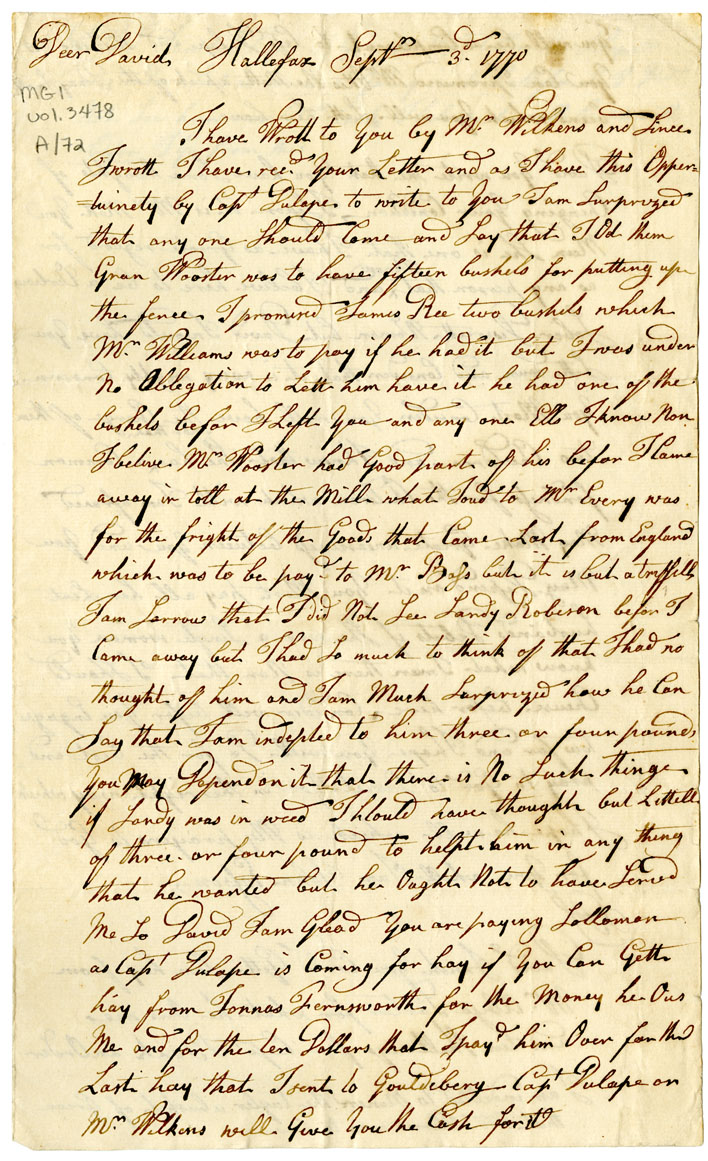 Deer David Hallefax Septm 3d 1770
MG1
vol. 3478
A/72
I have Wrott to You by Mr Wilkens and Since
I wrott I have recd Your Letter and as I have this Opper=
=tuinety by Capt Dulape to write to You I am Surprized
that any one Should Come and Say that I Od them
Gran Wooster was to have fifteen bushels for putting up
the fence I promised James Ree two bushels which
Mr Williams was to pay if he had it but I was under
No Oblegation to Lett him have it he had one of the
bushels befor I Left You and any one Ells I know Non
I belive Mr Wooster had Good part of his befor I Came
away in toll at the Mill what I oud to Mr Every was
for the fright of the Goods that Came Last from England
which was to be payd to Mr Bass but it is but a triffill
I am Sorrow that I did Not See Sandy Roberson befor I
Came away but I had So much to think of that I had no
thought of him and I am Much Surprized how he Can
Say that I am indepted to him three or four pounds
You May Dapend on it that there is No Such thinge
if Sandy was in need I Should have thought but Littell
of three or four pound to helpt him in any thing
that he wanted but he Ought Not to have Served
Me So David I am Glead You are paying Sollomon
as Capt Dulape is Coming for hay if You Can Gett
hay from Jonnas Fernsworth for the Money he Ous
Me and for the ten Dollars that I payd him Over for the
Last hay that I sent to Gouldsbery Capt Dulape or
Mr Wilkens will Give You the Cash for it